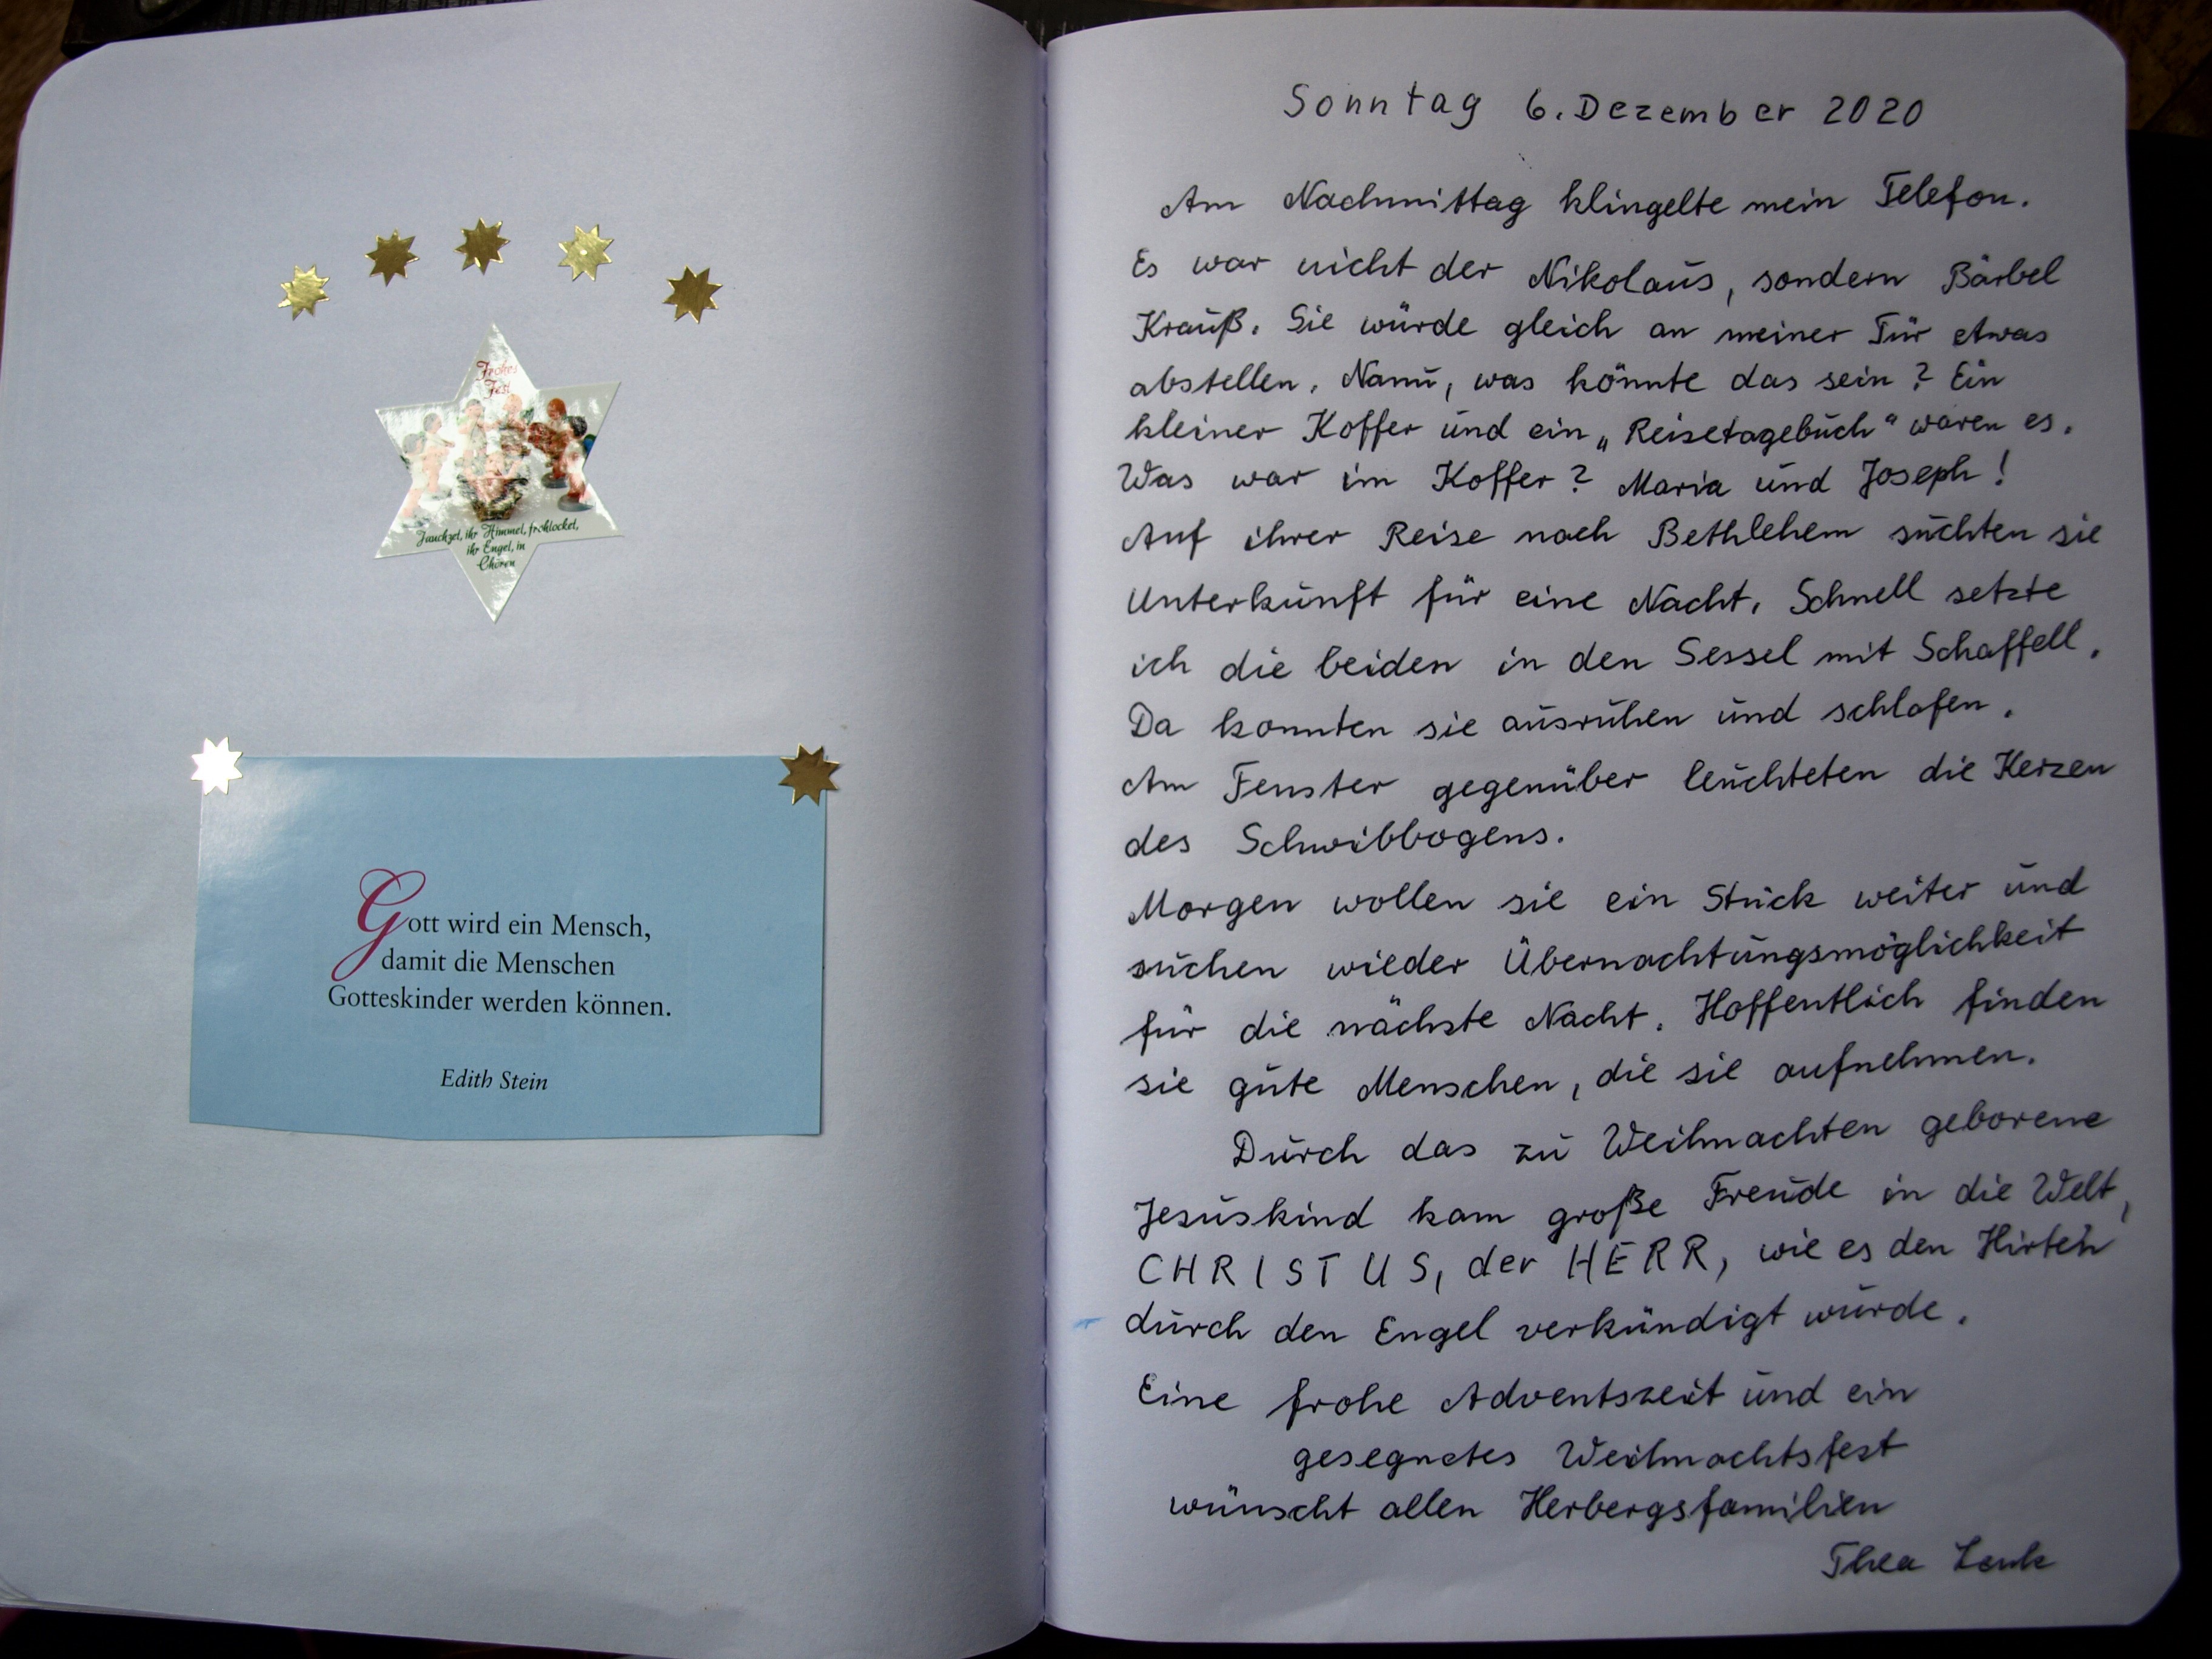 Frohes
Fest
Jauchzet, ihr Himmel, frohlocket,
ihr Engel, in
Chören
Gott wird ein Mensch,
damit die Menschen
Gotteskinder werden können.
Edith Stein
Sonntag 6. Dezember 2020
Am Nachmittag klingelte mein Telefon.
Es war nicht der Nikolaus, sondern Bärbel
Krauß. Sie würde gleich an meiner Tür etwas
abstellen. Nanu, was könnte das sein? Ein
kleiner Koffer und ein „Reisetagebuch“ waren es.
Was war im Koffer? Maria und Joseph!
Auf ihrer Reise nach Bethlehem suchten sie
Unterkunft für eine Nacht. Schnell setzte
ich die beiden in den Sessel mit Schaffell.
Da konnten sie ausruhen und schlafen.
Am Fenster gegenüber leuchteten die Kerzen
des Schwibbogens.
Morgen wollen sie ein Stück weiter und
suchen wieder Übernachtungsmöglichkeit
für die nächste Nacht. Hoffentlich finden
sie gute Menschen, die sie aufnehmen.
Durch das zu Weihnachten geborene
Jesuskind kam große Freude in die Welt,
CHRISTUS, der HERR, wie es den Hirten
durch den Engel verkündigt wurde.
Eine frohe Adventszeit und ein
gesegnetes Weihnachtsfest
wünscht allen Herbergsfamilien
Thea Lenk